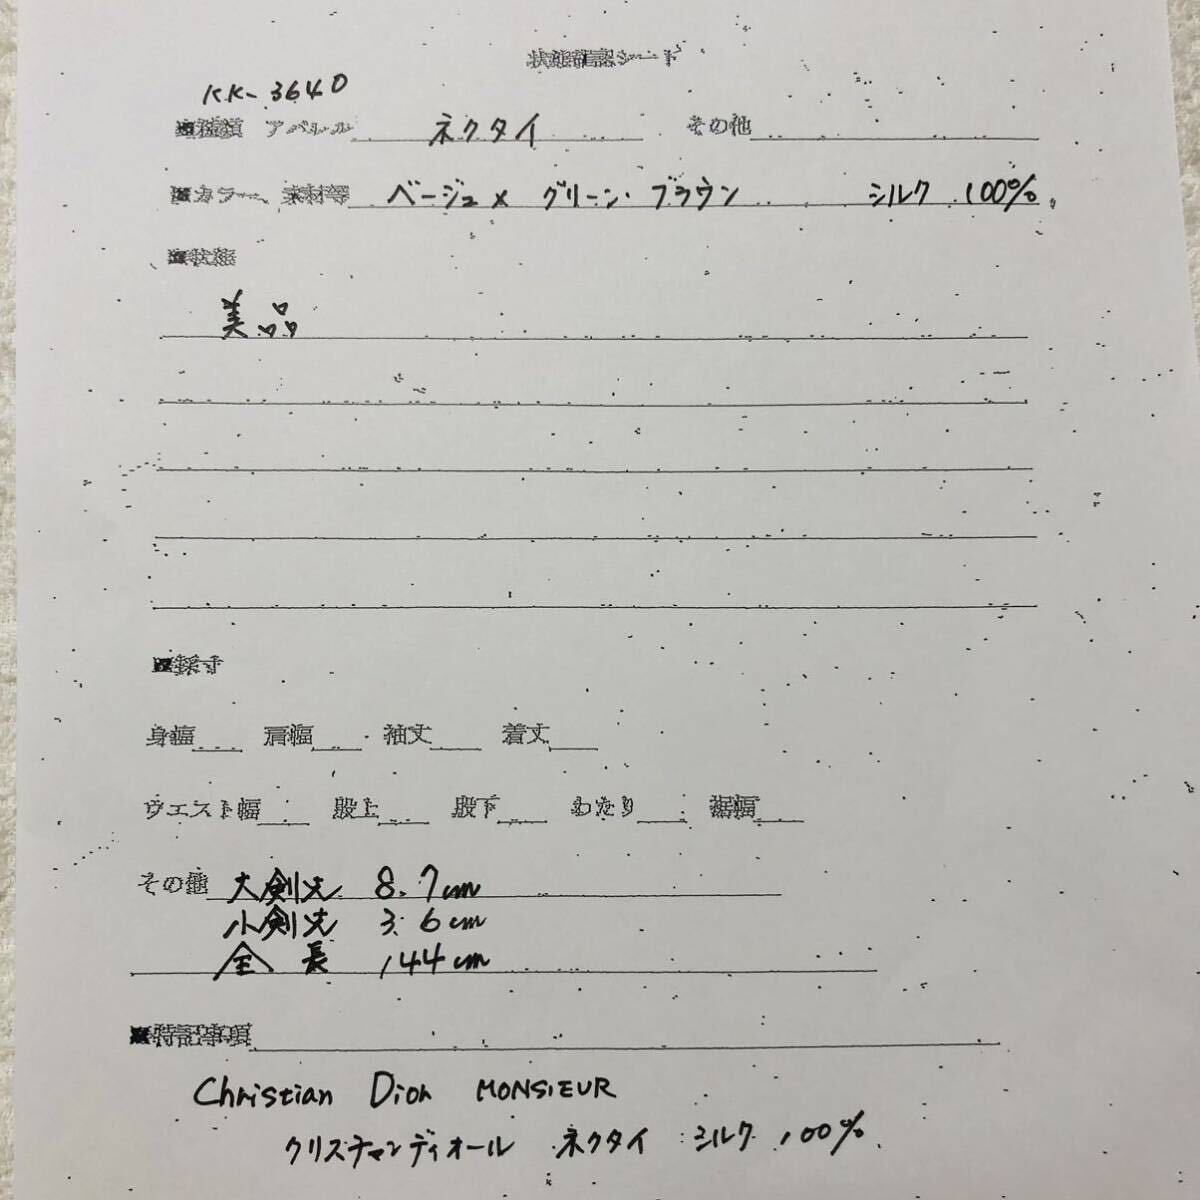 状態確認シート
KK-3640
■種類 アパレル ネクタイ その他
■カラー、素材等 ベージュ× グリーン・ブラウン シルク 100%.
■状態
美品
■採寸
身幅 肩幅 袖丈 着丈
ウエスト幅 股上 股下 わたり 裾幅
その他 大剣丈 8.7cm
小剣丈 3.6cm
全長 144cm
■特記事項
Christian Dior MONSIEUR
クリスチャンディオール ネクタイ シルク 100%.